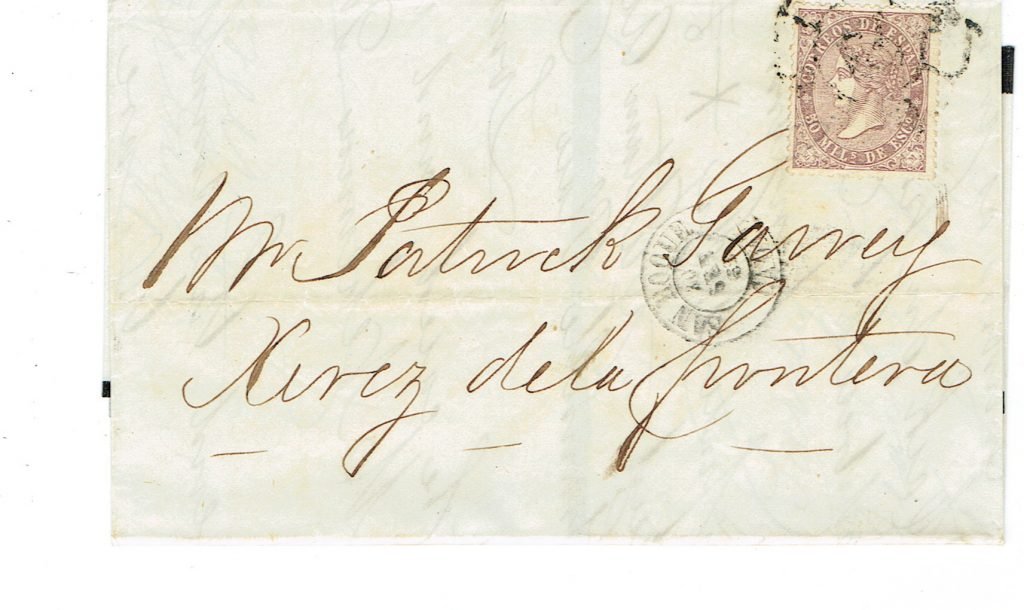 CORREOS DE ESPAÑA
50 MILS DE ESCO
Mr Patrick Garvey
SAN ROQUE
Xerez de la frontera